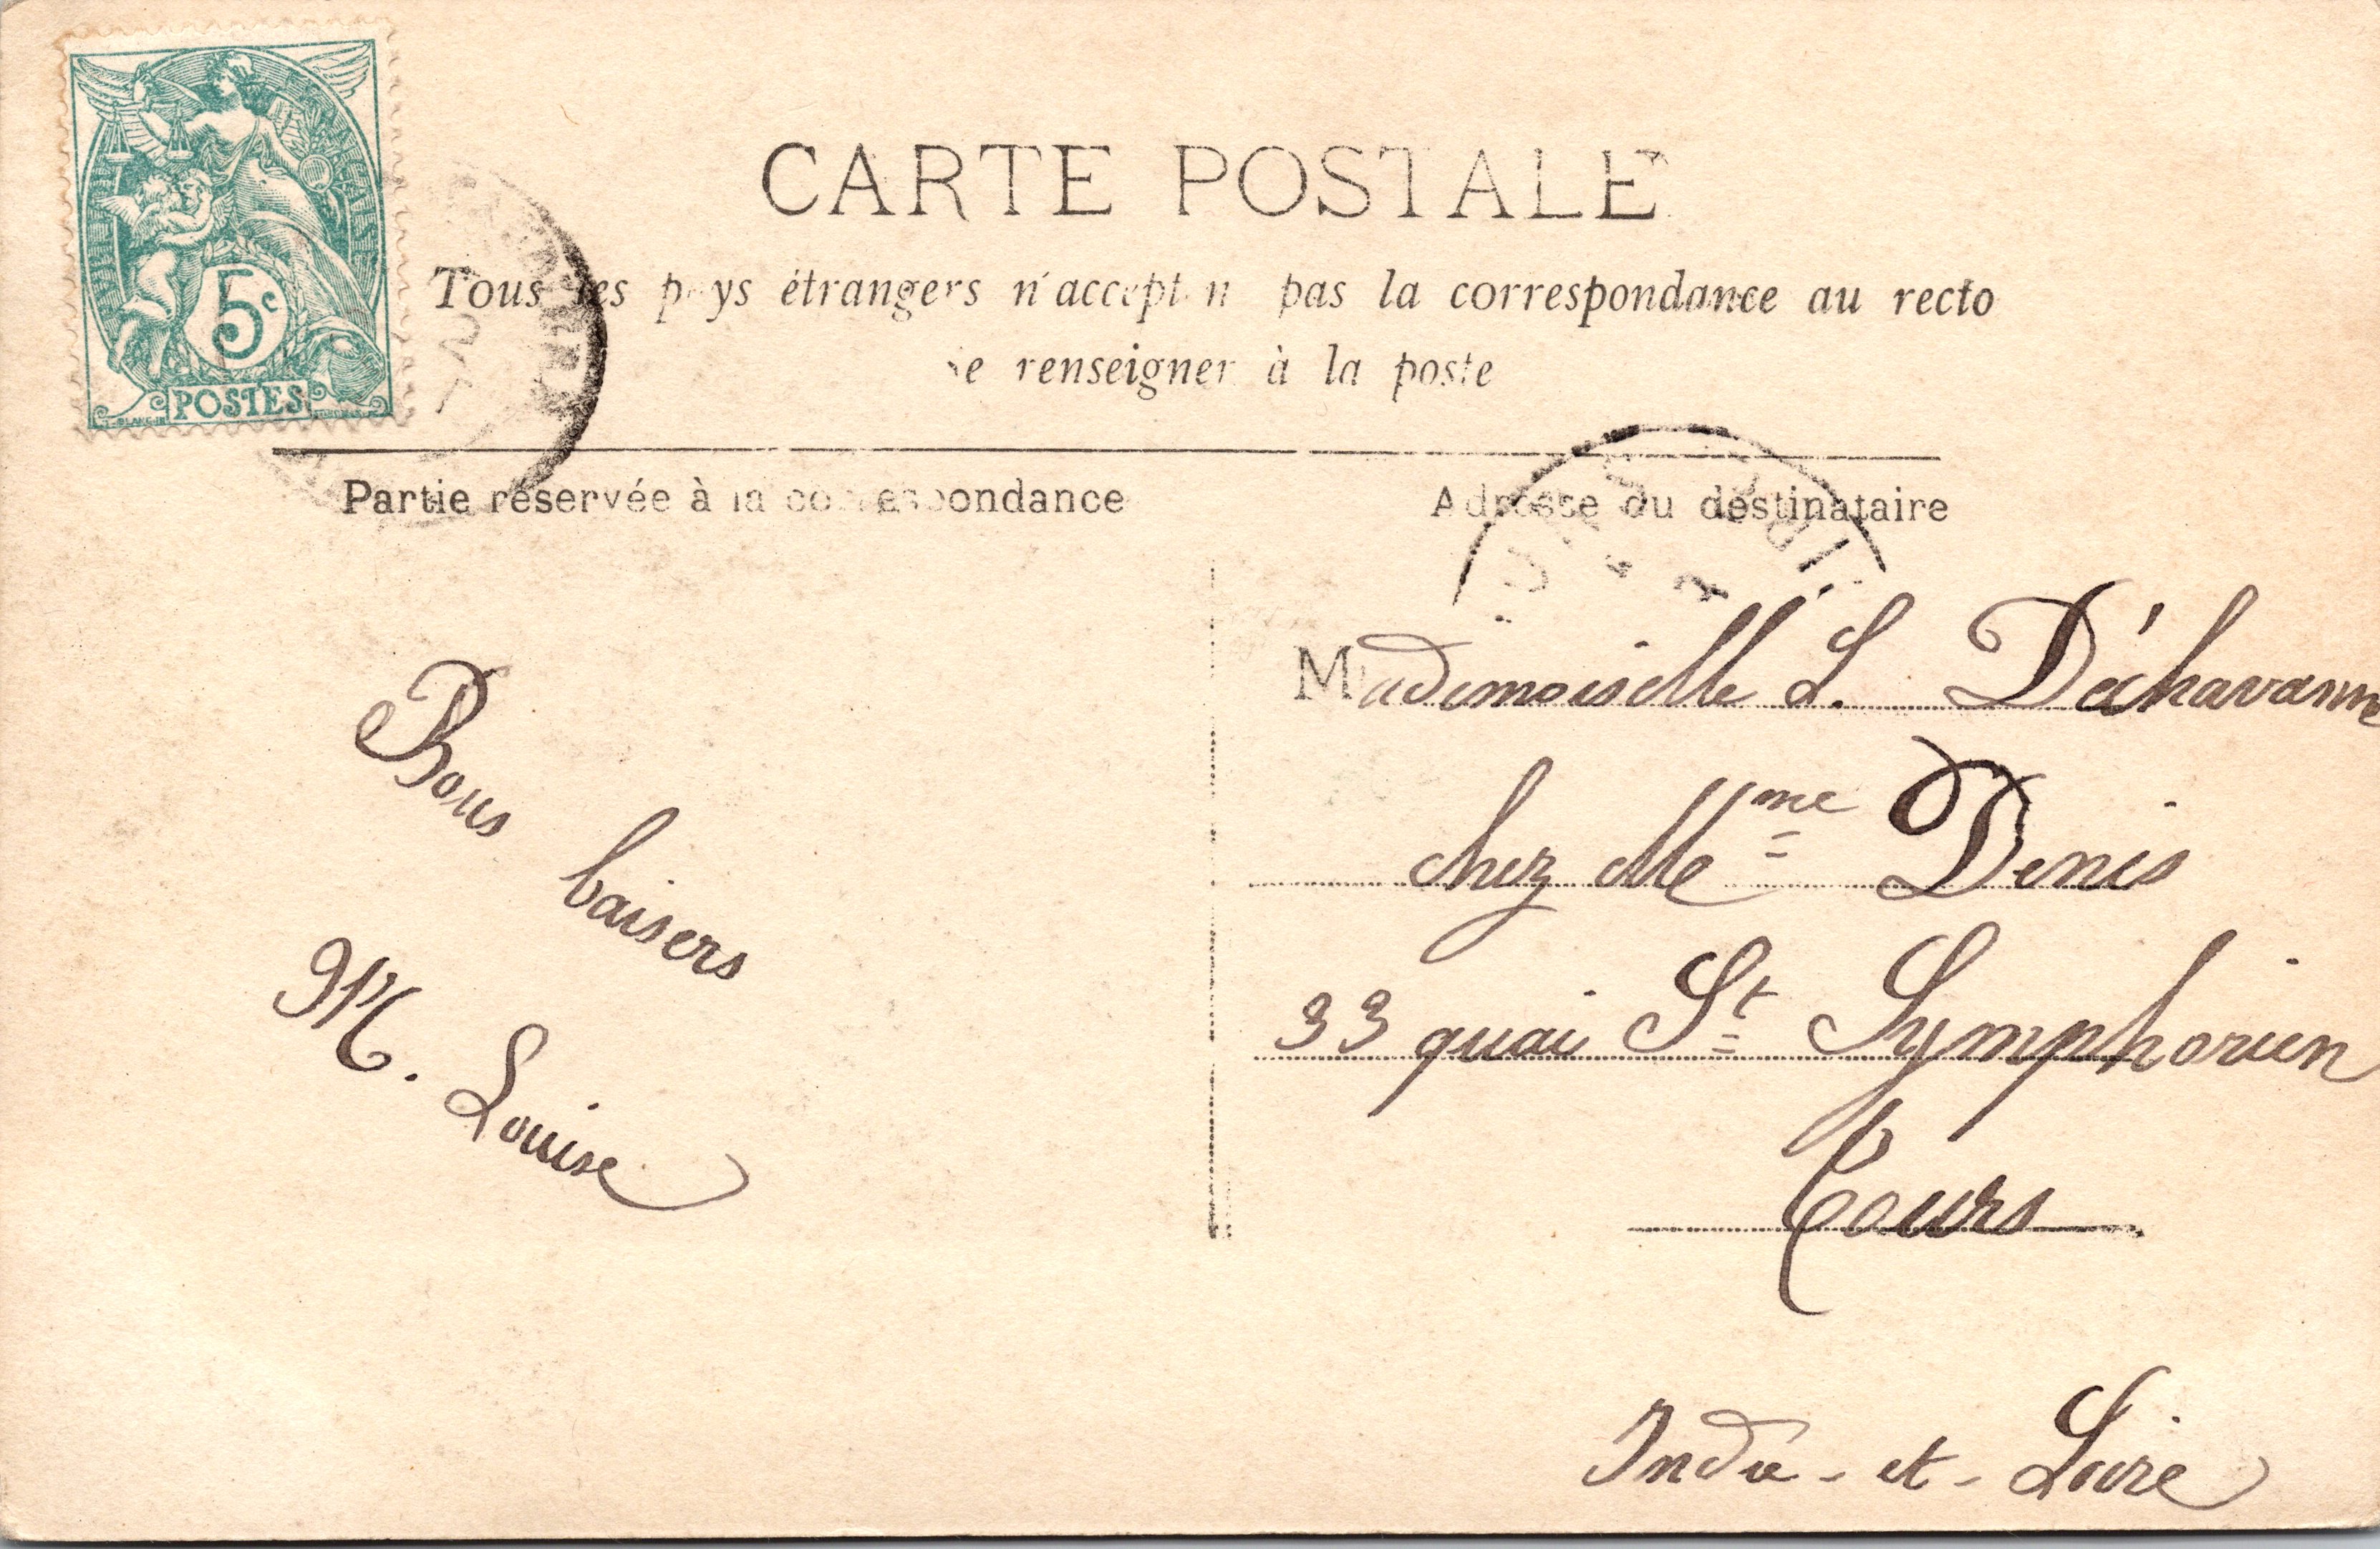 5c
POSTES
CARTE POSTALE
Tous les pays étrangers n'acceptent pas la correspondance au recto
Se renseigner à la poste
Partie réservée à la correspondance
Adresse du destinataire
Bons baisers
M. Louise
Mademoiselle L. Déchavanne
chez Mme Denis
33 quai St Symphorien
Tours
Indre-et-Loire